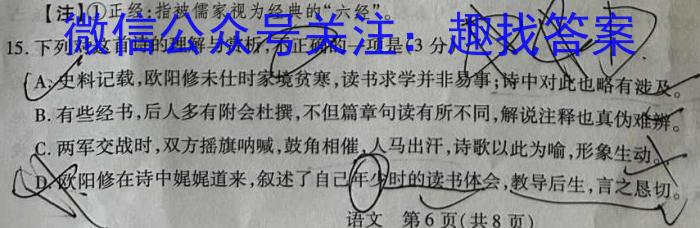 【注】①正经:指被儒家视为经典的“六经”。
微信公众号关注:趣找答案
15.下列对这首诗的理解与赏析,不正确的一项是(3分)
A.史料记载,欧阳修未仕时家境贫寒,读书求学并非易事;诗中对此也略有涉及。
B.有些经书,后人多有附会杜撰,不但篇章句读有所不同,解说注释也真伪难辨。
C.两军交战时,双方摇旗呐喊,鼓角相催,人马出汗,诗歌以此为喻,形象生动。
D.欧阳修在诗中娓娓道来,叙述了自己年少时的读书体会,教导后生,言之恳切。
语文 第6页(共8页)